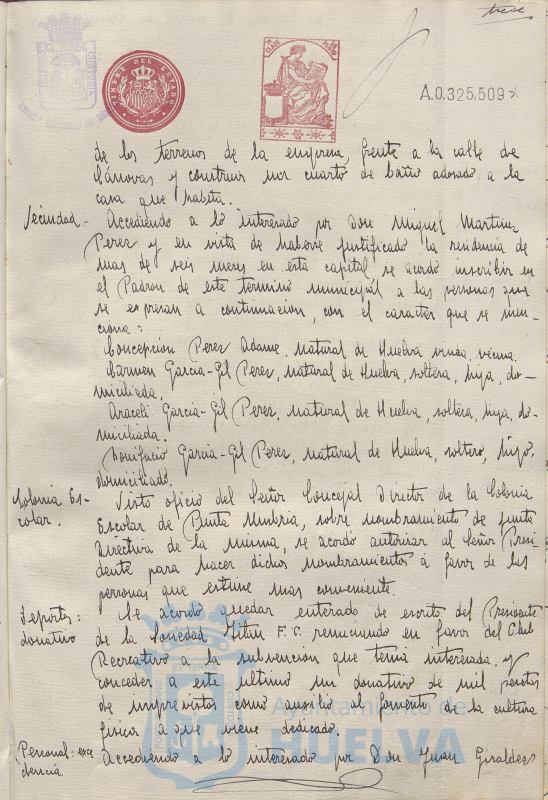 trece
TIMBRE DEL ESTADO
A.0.325.509
de los terrenos de la empresa, frente a la calle de
Cánovas y construir un cuarto de baño adosado a la
casa que habita.
Vecindad - Accediendo a lo interesado por Don Miguel Martin
Perez y en vista de haberse justificado la residencia de
mas de seis meses en esta capital se acordo inscribir en
el Padron de este termino municipal a las personas que
se expresan a continuacion, con el caracter que se men-
ciona:
Concepcion Perez Adame, natural de Huelva viuda, vecina.
Carmen Garcia-Gil Perez, natural de Huelva, soltera, hija, do-
miciliada.
Araceli Garcia-Gil Perez, natural de Huelva, soltera, hija, do-
miciliada.
Bonifacio Garcia-Gil Perez, natural de Huelva, soltero, hijo,
domiciliado.
Colonia Es- Visto oficio del Señor Concejal Director de la Colonia
colar. Escolar de Punta Umbria, sobre nombramiento de Junta
Directiva de la misma, se acordo autorizar al Señor Presi-
dente para hacer dichos nombramientos á favor de las
personas que estime mas conveniente.
Deportes: Se acordo quedar enterado de escrito del Presidente
donativo de la Sociedad Titan F.C. renunciando en favor del Club
Recreativo a la subvención que tenia interesada, y
conceder a este ultimo un donativo de mil pesetas
de imprevistos como auxilio al fomento de la cultura
fisica a que viene dedicado.
Personal: exce Accediendo a lo interesado por Don Juan Giraldez
dencia.
Ayuntamiento de
HUELVA